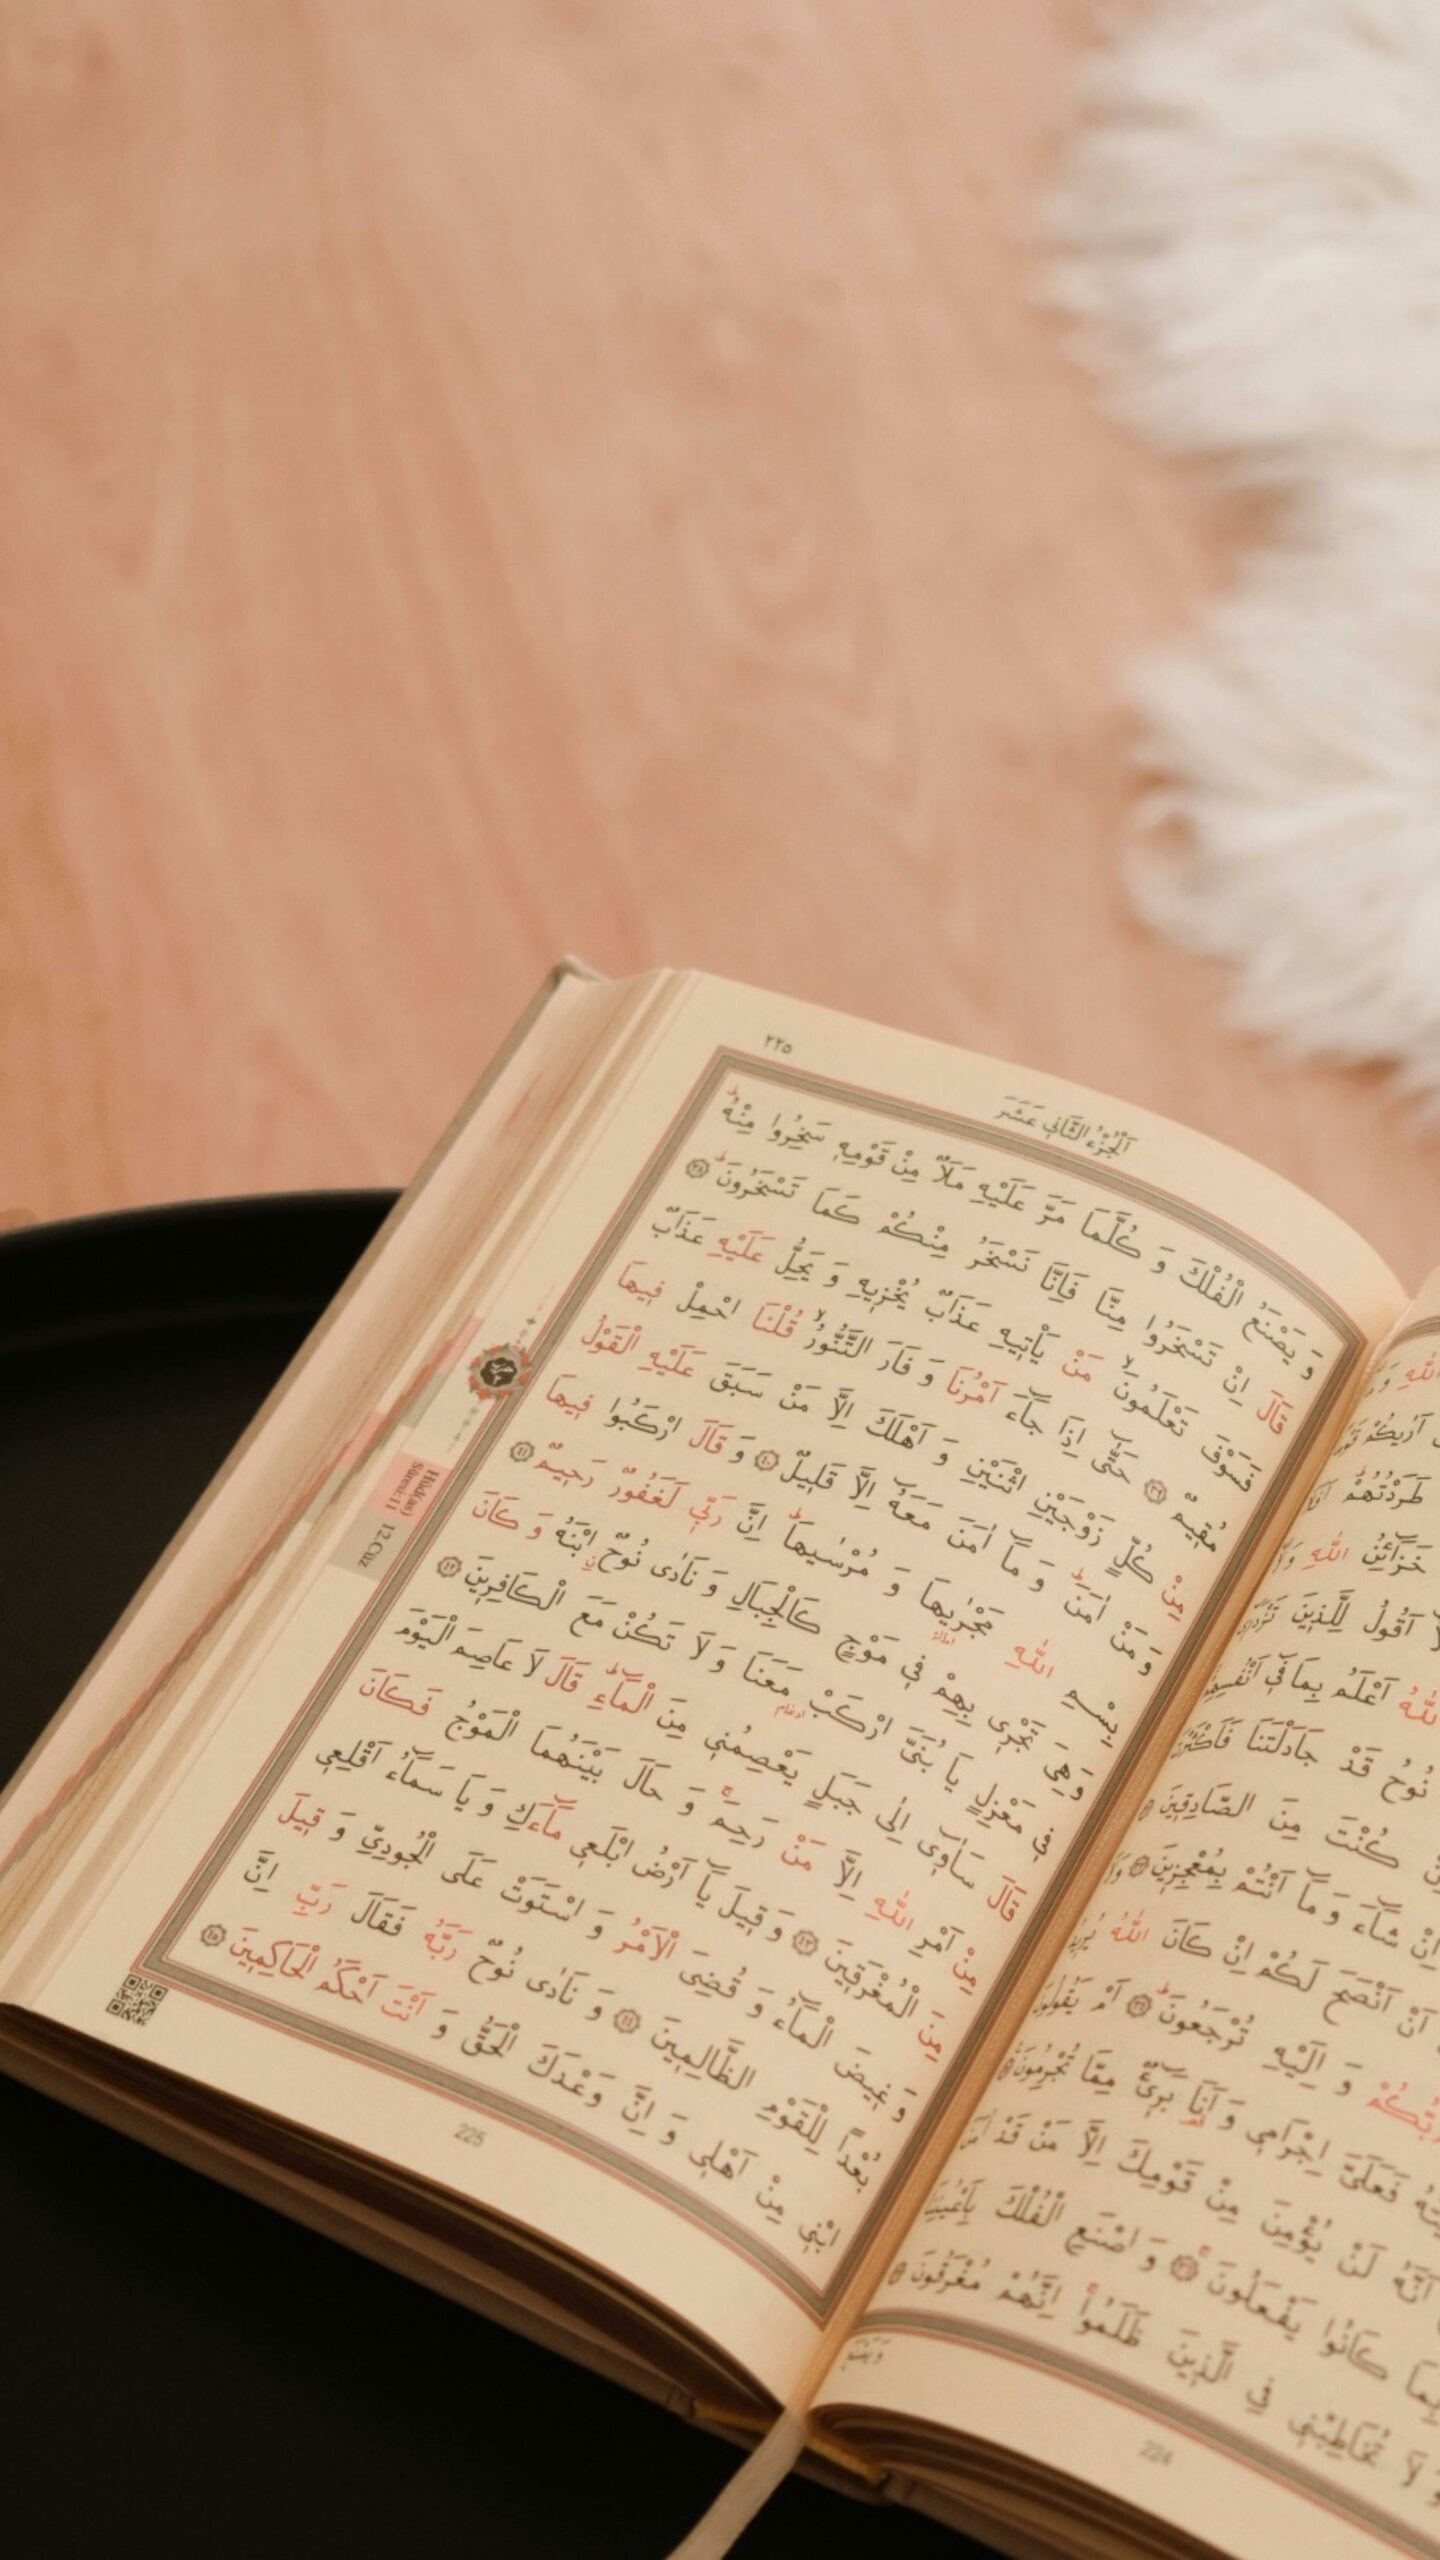 ٢٢٥
اَلْجُزْءُ الثَّانِي عَشَرَ
وَ يَصْنَعُ الْفُلْكَ وَ كُلَّمَا مَرَّ عَلَيْهِ مَلَأٌ مِنْ قَوْمِهِ سَخِرُوا مِنْهُ ط
قَالَ اِنْ تَسْخَرُوا مِنَّا فَاِنَّا نَسْخَرُ مِنْكُمْ كَمَا تَسْخَرُونَ ط ﴿٣٨﴾
فَسَوْفَ تَعْلَمُونَ لا مَنْ يَأْتِيهِ عَذَابٌ يُخْزِيهِ وَ يَحِلُّ عَلَيْهِ عَذَابٌ
مُقِيمٌ ﴿٣٩﴾ حَتّٰٓى اِذَا جَٓاءَ اَمْرُنَا وَ فَارَ التَّنُّورُ لا قُلْنَا احْمِلْ فِيهَا
مِنْ كُلٍّ زَوْجَيْنِ اثْنَيْنِ وَ اَهْلَكَ اِلَّا مَنْ سَبَقَ عَلَيْهِ الْقَوْلُ
وَ مَنْ اٰمَنَ ط وَ مَٓا اٰمَنَ مَعَهُٓ اِلَّا قَلِيلٌ ﴿٤٠﴾ وَ قَالَ ارْكَبُوا فِيهَا
بِسْمِ اللّٰهِ مَجْرٰۭيهَا وَ مُرْسٰيهَا ط اِنَّ رَبِّي لَغَفُورٌ رَحِيمٌ ﴿٤١﴾
اماله
وَهِيَ تَجْرِي بِهِمْ فِي مَوْجٍ كَالْجِبَالِ وَ نَادٰى نُوحٌ ابْنَهُ وَ كَانَ
فِي مَعْزِلٍ يَا بُنَيَّ ارْكَبْ مَعَنَا وَ لَا تَكُنْ مَعَ الْكَافِرِينَ ﴿٤٢﴾
ادغام
قَالَ سَاٰوِٓي اِلٰى جَبَلٍ يَعْصِمُنِي مِنَ الْمَٓاءِ ط قَالَ لَا عَاصِمَ الْيَوْمَ
مِنْ اَمْرِ اللّٰهِ اِلَّا مَنْ رَحِمَ ج وَ حَالَ بَيْنَهُمَا الْمَوْجُ فَكَانَ
مِنَ الْمُغْرَقِينَ ﴿٤٣﴾ وَ قِيلَ يَٓا اَرْضُ ابْلَعِي مَٓاءَكِ وَ يَا سَمَٓاءُ اَقْلِعِي
وَ غِيضَ الْمَٓاءُ وَ قُضِيَ الْاَمْرُ وَ اسْتَوَتْ عَلَى الْجُودِيِّ وَ قِيلَ
بُعْدًا لِلْقَوْمِ الظَّالِمِينَ ﴿٤٤﴾ وَ نَادٰى نُوحٌ رَبَّهُ فَقَالَ رَبِّ اِنَّ
ابْنِي مِنْ اَهْلِي وَ اِنَّ وَعْدَكَ الْحَقُّ وَ اَنْتَ اَحْكَمُ الْحَاكِمِينَ ﴿٤٥﴾
Hûd(as)
Sûresi:11
12.Cüz
225
اللّٰهِ
طَرَدْتُهُمْ ط
خَزَٓائِنُ اللّٰهِ
اَقُولُ لِلَّذِينَ
اَعْلَمُ بِمَا فِٓي
نُوحُ قَدْ جَادَلْتَنَا
كُنْتَ مِنَ الصَّادِقِينَ
اِنْ شَٓاءَ وَ مَٓا اَنْتُمْ بِمُعْجِزِينَ
اَنْ اَنْصَحَ لَكُمْ اِنْ كَانَ اللّٰهُ
وَ اِلَيْهِ تُرْجَعُونَ ط ﴿٣٤﴾ اَمْ
فَعَلَيَّ اِجْرَامِي وَ اَنَا بَرِٓيءٌ مِمَّا تُجْرِمُونَ
اَنَّهُ لَنْ يُؤْمِنَ مِنْ قَوْمِكَ اِلَّا مَنْ قَدْ اٰمَنَ
كَانُوا يَفْعَلُونَ ج ﴿٣٦﴾ وَ اصْنَعِ الْفُلْكَ
وَ لَا تُخَاطِبْنِي فِي الَّذِينَ ظَلَمُوا ج اِنَّهُمْ مُغْرَقُونَ
وَيَصْنَعُ
224